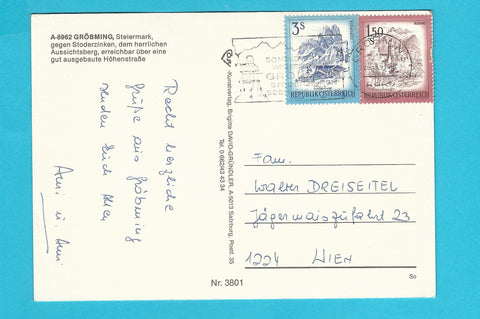 A-8962 GRÖBMING, Steiermark,
gegen Stoderzinken, dem herrlichen
Aussichtsberg, erreichbar über eine
gut ausgebaute Höhenstraße
Recht herzliche
Grüße aus Gröbming
senden Euch
Kunstverlag, Brigitte DAVID-GRÜNDLER, A-5013 Salzburg, Postf. 35
Tel. 0 662/43 43 34
3S
REPUBLIK ÖSTERREICH
1.50
REPUBLIK ÖSTERREICH
Fam.
Walter DREISEITEL
Jägermaiszufahrt 23
1224 WIEN
Nr. 3801
So